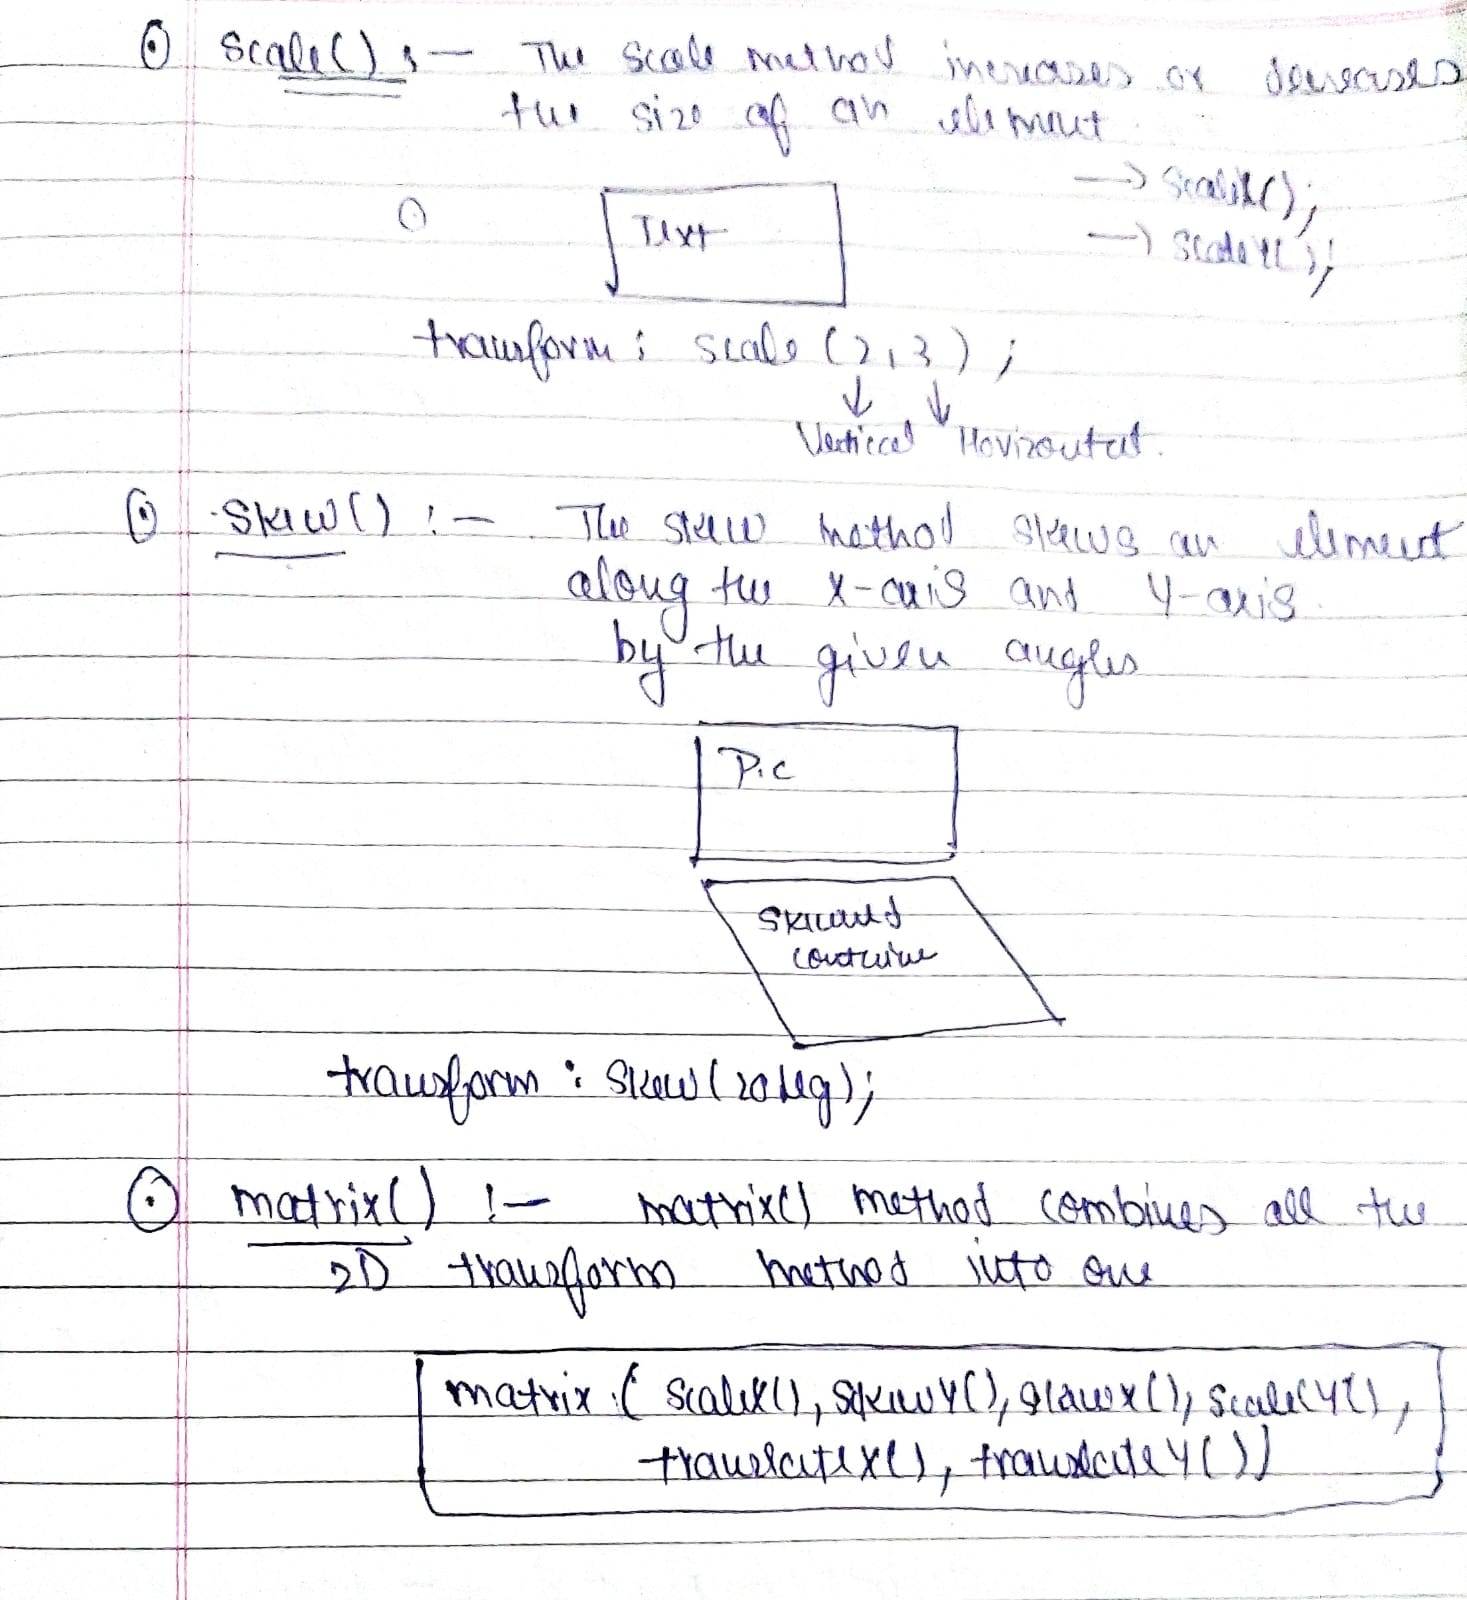 Scale() :- The Scale method increases or decreases
the size of an element
→ ScaleX();
Text
→ ScaleY();
transform : scale (2,3) ;
Vertical Horizontal.
Skew() :- The skew method skews an element
along the x-axis and Y-axis.
by the given angles
Pic
transform : Skew(20deg);
matrix() :- matrix() method combines all the
2D transform method into one
matrix ( ScaleX(), SkewY(), skewX(), Scale(Y(),
translateX(), translateY())